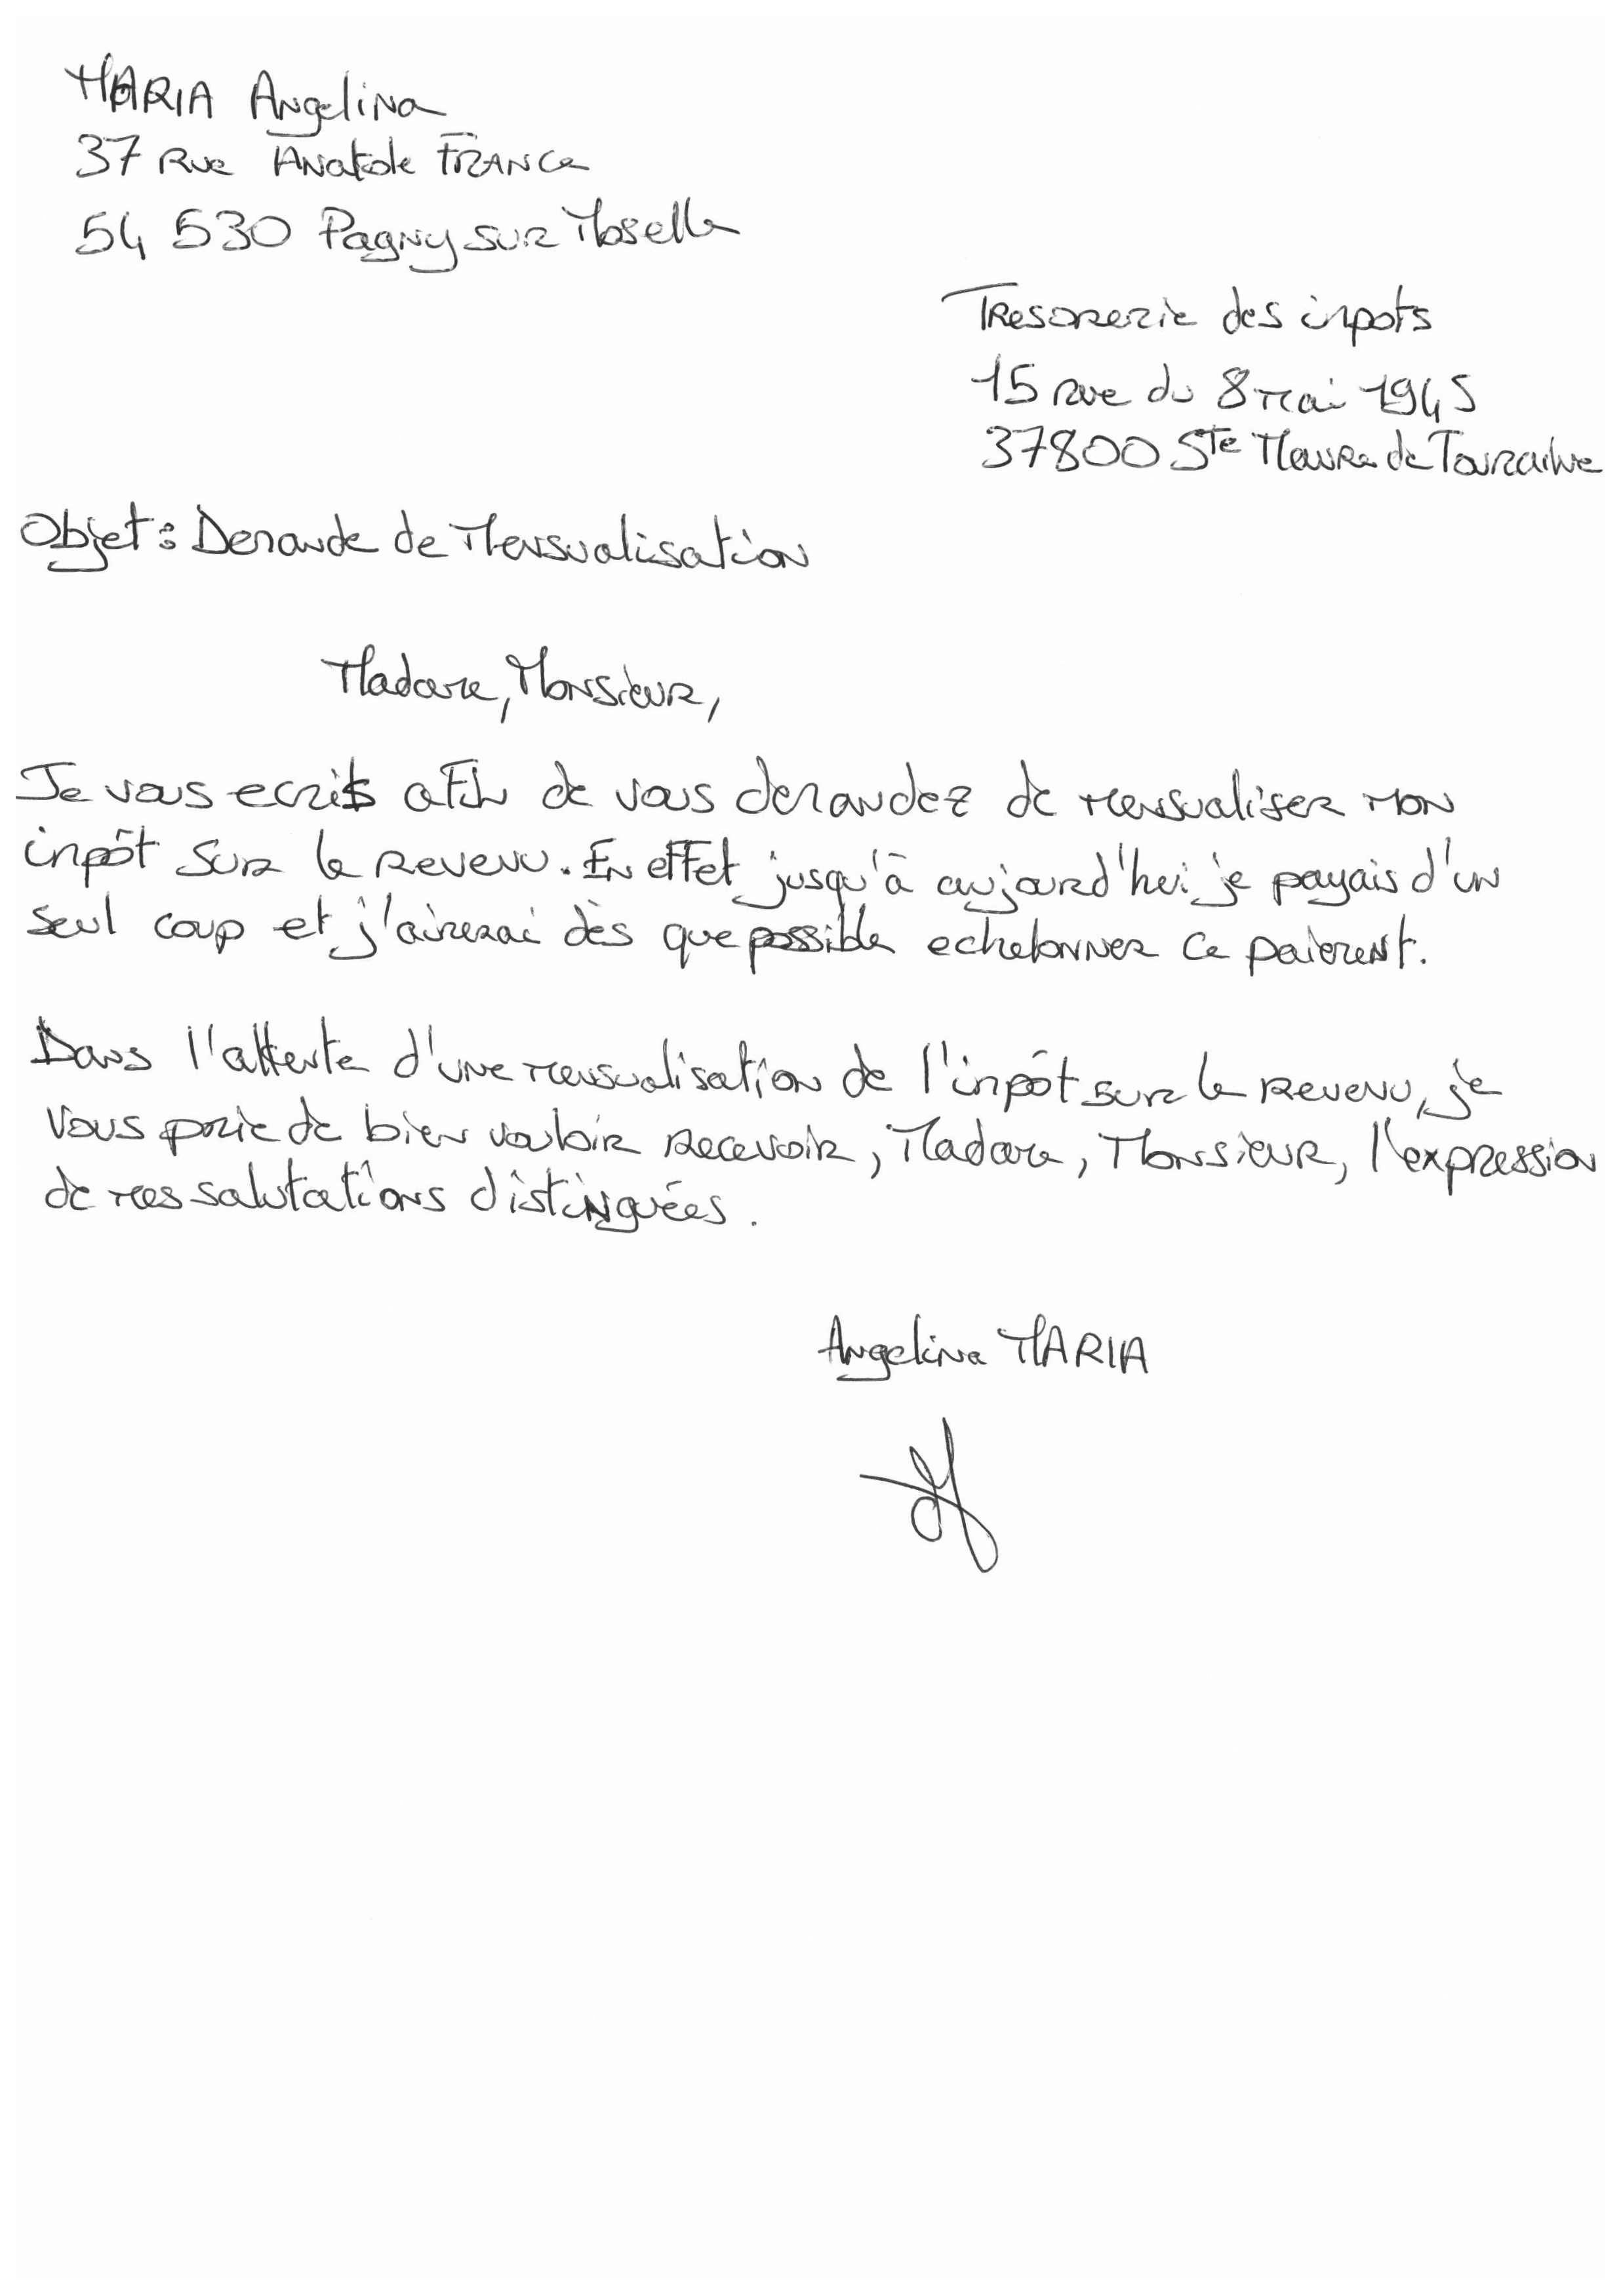 MARIA Angelina
37 Rue Anatole FRANCE
54 530 Pagny sur Moselle
Tresorerie des impots
15 rue du 8 mai 1945
37800 Ste Maure de Touraine
Objet : Demande de Mensualisation
Madame, Monsieur,
Je vous ecris afin de vous demandez de mensualiser mon
impôt sur le revenu. En effet jusqu'à aujourd'hui je payais d'un
seul coup et j'aimerai dès que possible echelonner ce paiement.
Dans l'attente d'une mensualisation de l'impôt sur le revenu, je
vous prie de bien vouloir recevoir, Madame, Monsieur, l'expression
de mes salutations distinguées.
Angelina MARIA